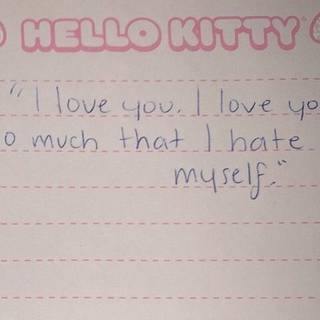 HELLO KITTY
"I love you. I love yo
o much that I hate
myself."